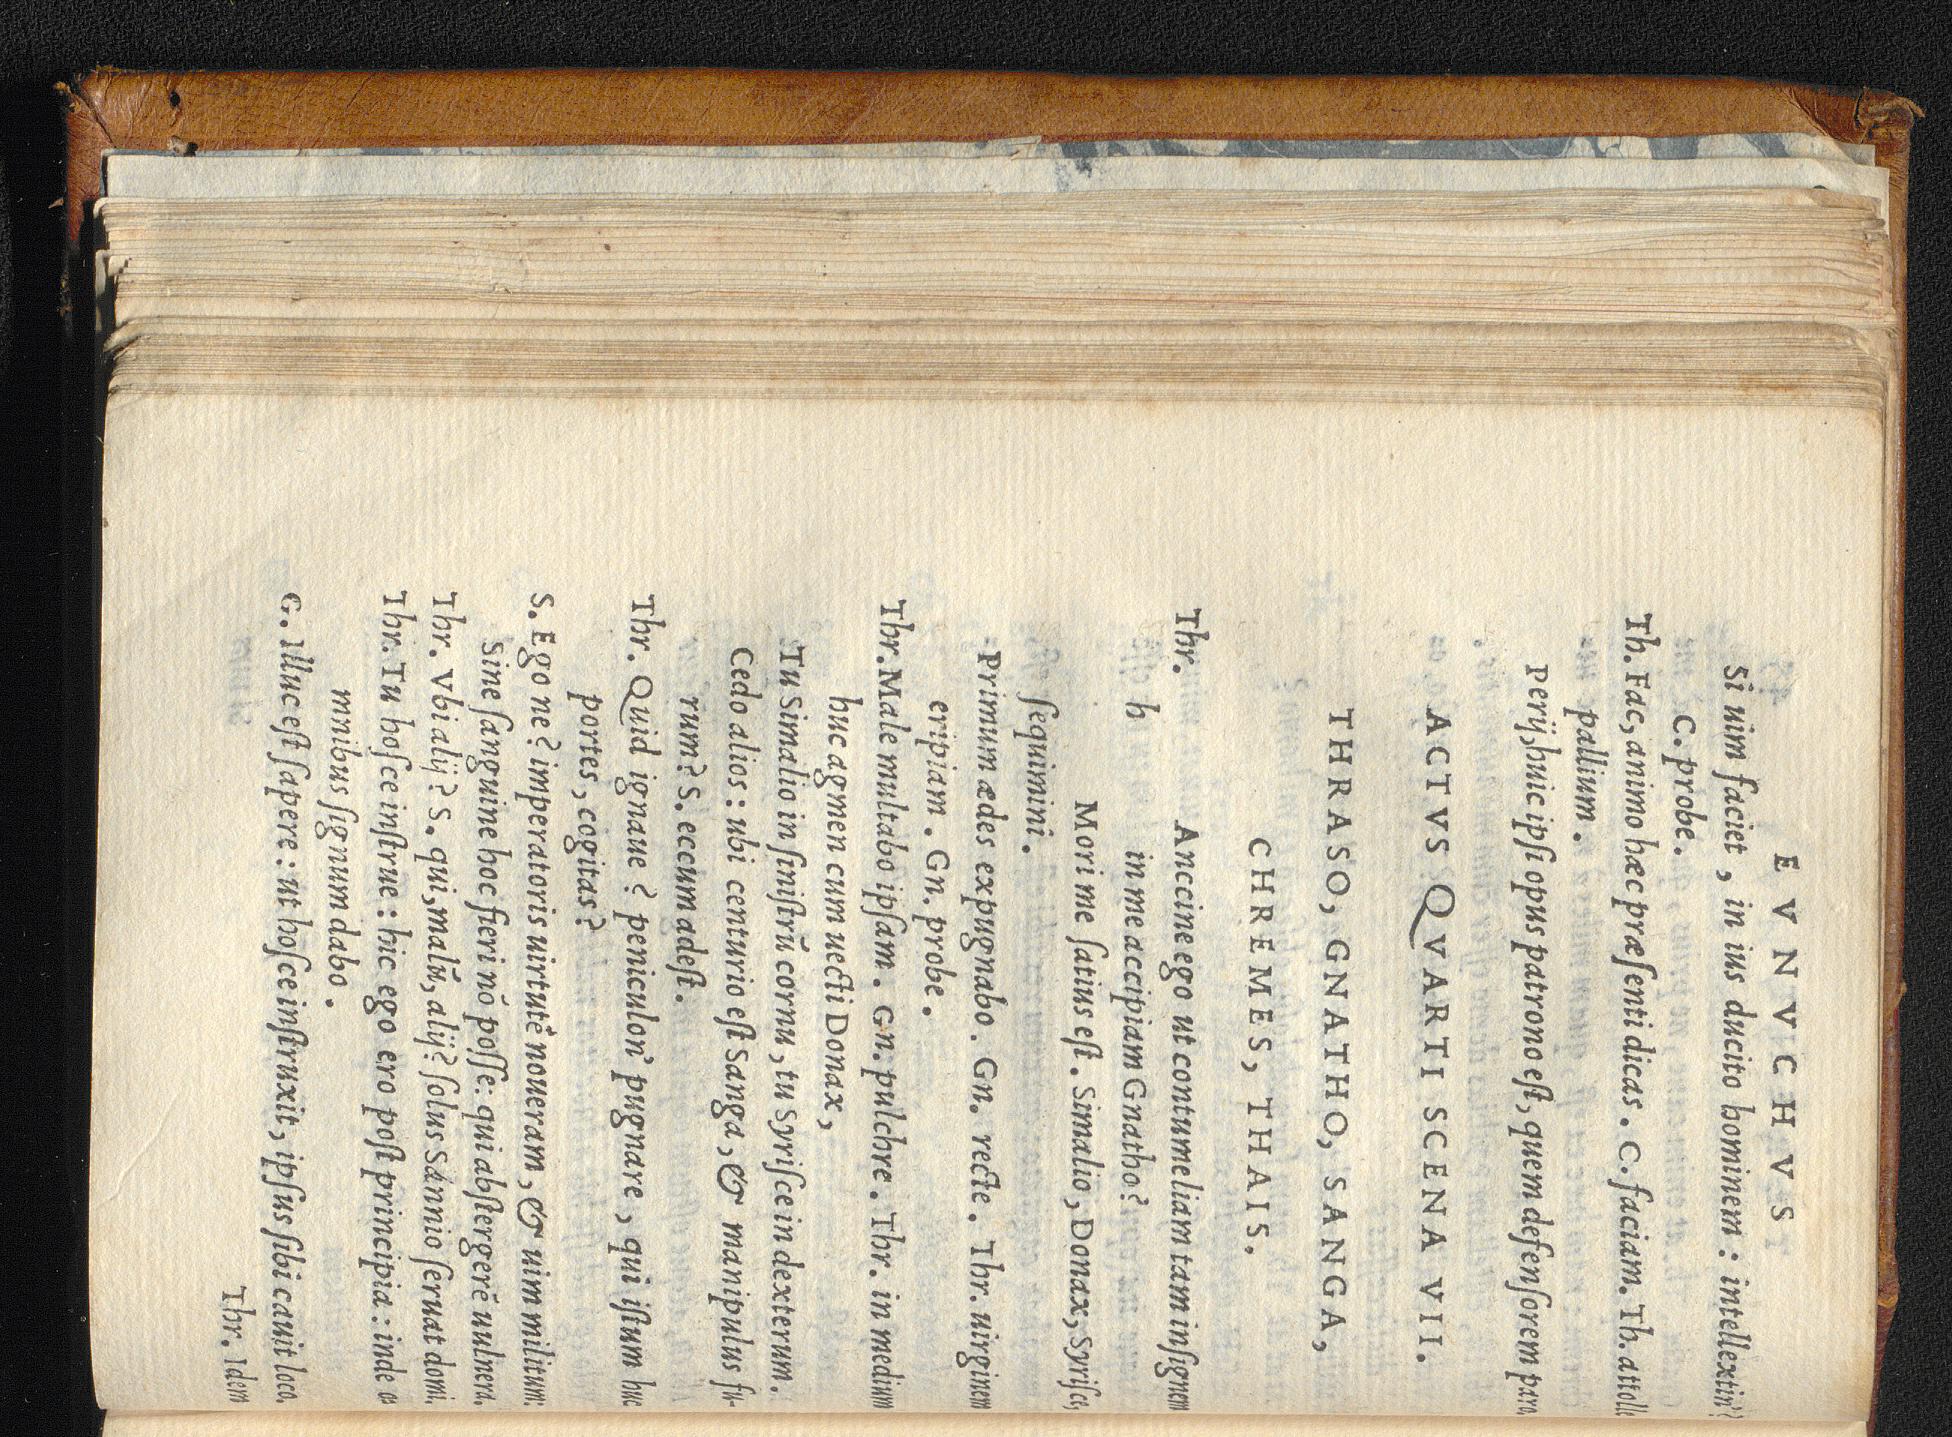 EVNVCHVS
Si uim faciet, in ius ducito hominem : intellextin'?
C. probe.
Th. Fac, animo hæc præsenti dicas. C. faciam. Th. attolle
pallium.
Perij, huic ipsi opus patrono est, quem defensorem paro.
ACTVS QVARTI SCENA VII.
THRASO, GNATHO, SANGA,
CHREMES, THAIS.
Thr. Anccine ego ut contumeliam tam insignem
h in me accipiam Gnatho?
Mori me satius est. Simalio, Donax, Syrisce,
sequimini.
Primum ædes expugnabo. Gn. recte. Thr. uirginem
eripiam. Gn. probe.
Thr. Male multabo ipsam. Gn. pulchre. Thr. in medium
huc agmen cum uecti Donax,
Tu Simalio in sinistrũ cornu, tu Syrisce in dexterum.
Cedo alios: ubi centurio est Sanga, & manipulus fu-
rum? S. eccum adest.
Thr. Quid ignaue? peniculon' pugnare, qui istum huc
portes, cogitas?
S. Ego ne? imperatoris uirtutẽ noueram, & uim militum:
Sine sanguine hoc fieri nõ posse: qui abstergerẽ uulnera.
Thr. Vbi alij? S. qui, malũ, alij? solus Sannio seruat domi.
Thr. Tu hosce instrue: hic ego ero post principia: inde o
mnibus signum dabo.
G. Illuc est sapere: ut hosce instruxit, ipsus sibi cauit loco.
Thr. Idem